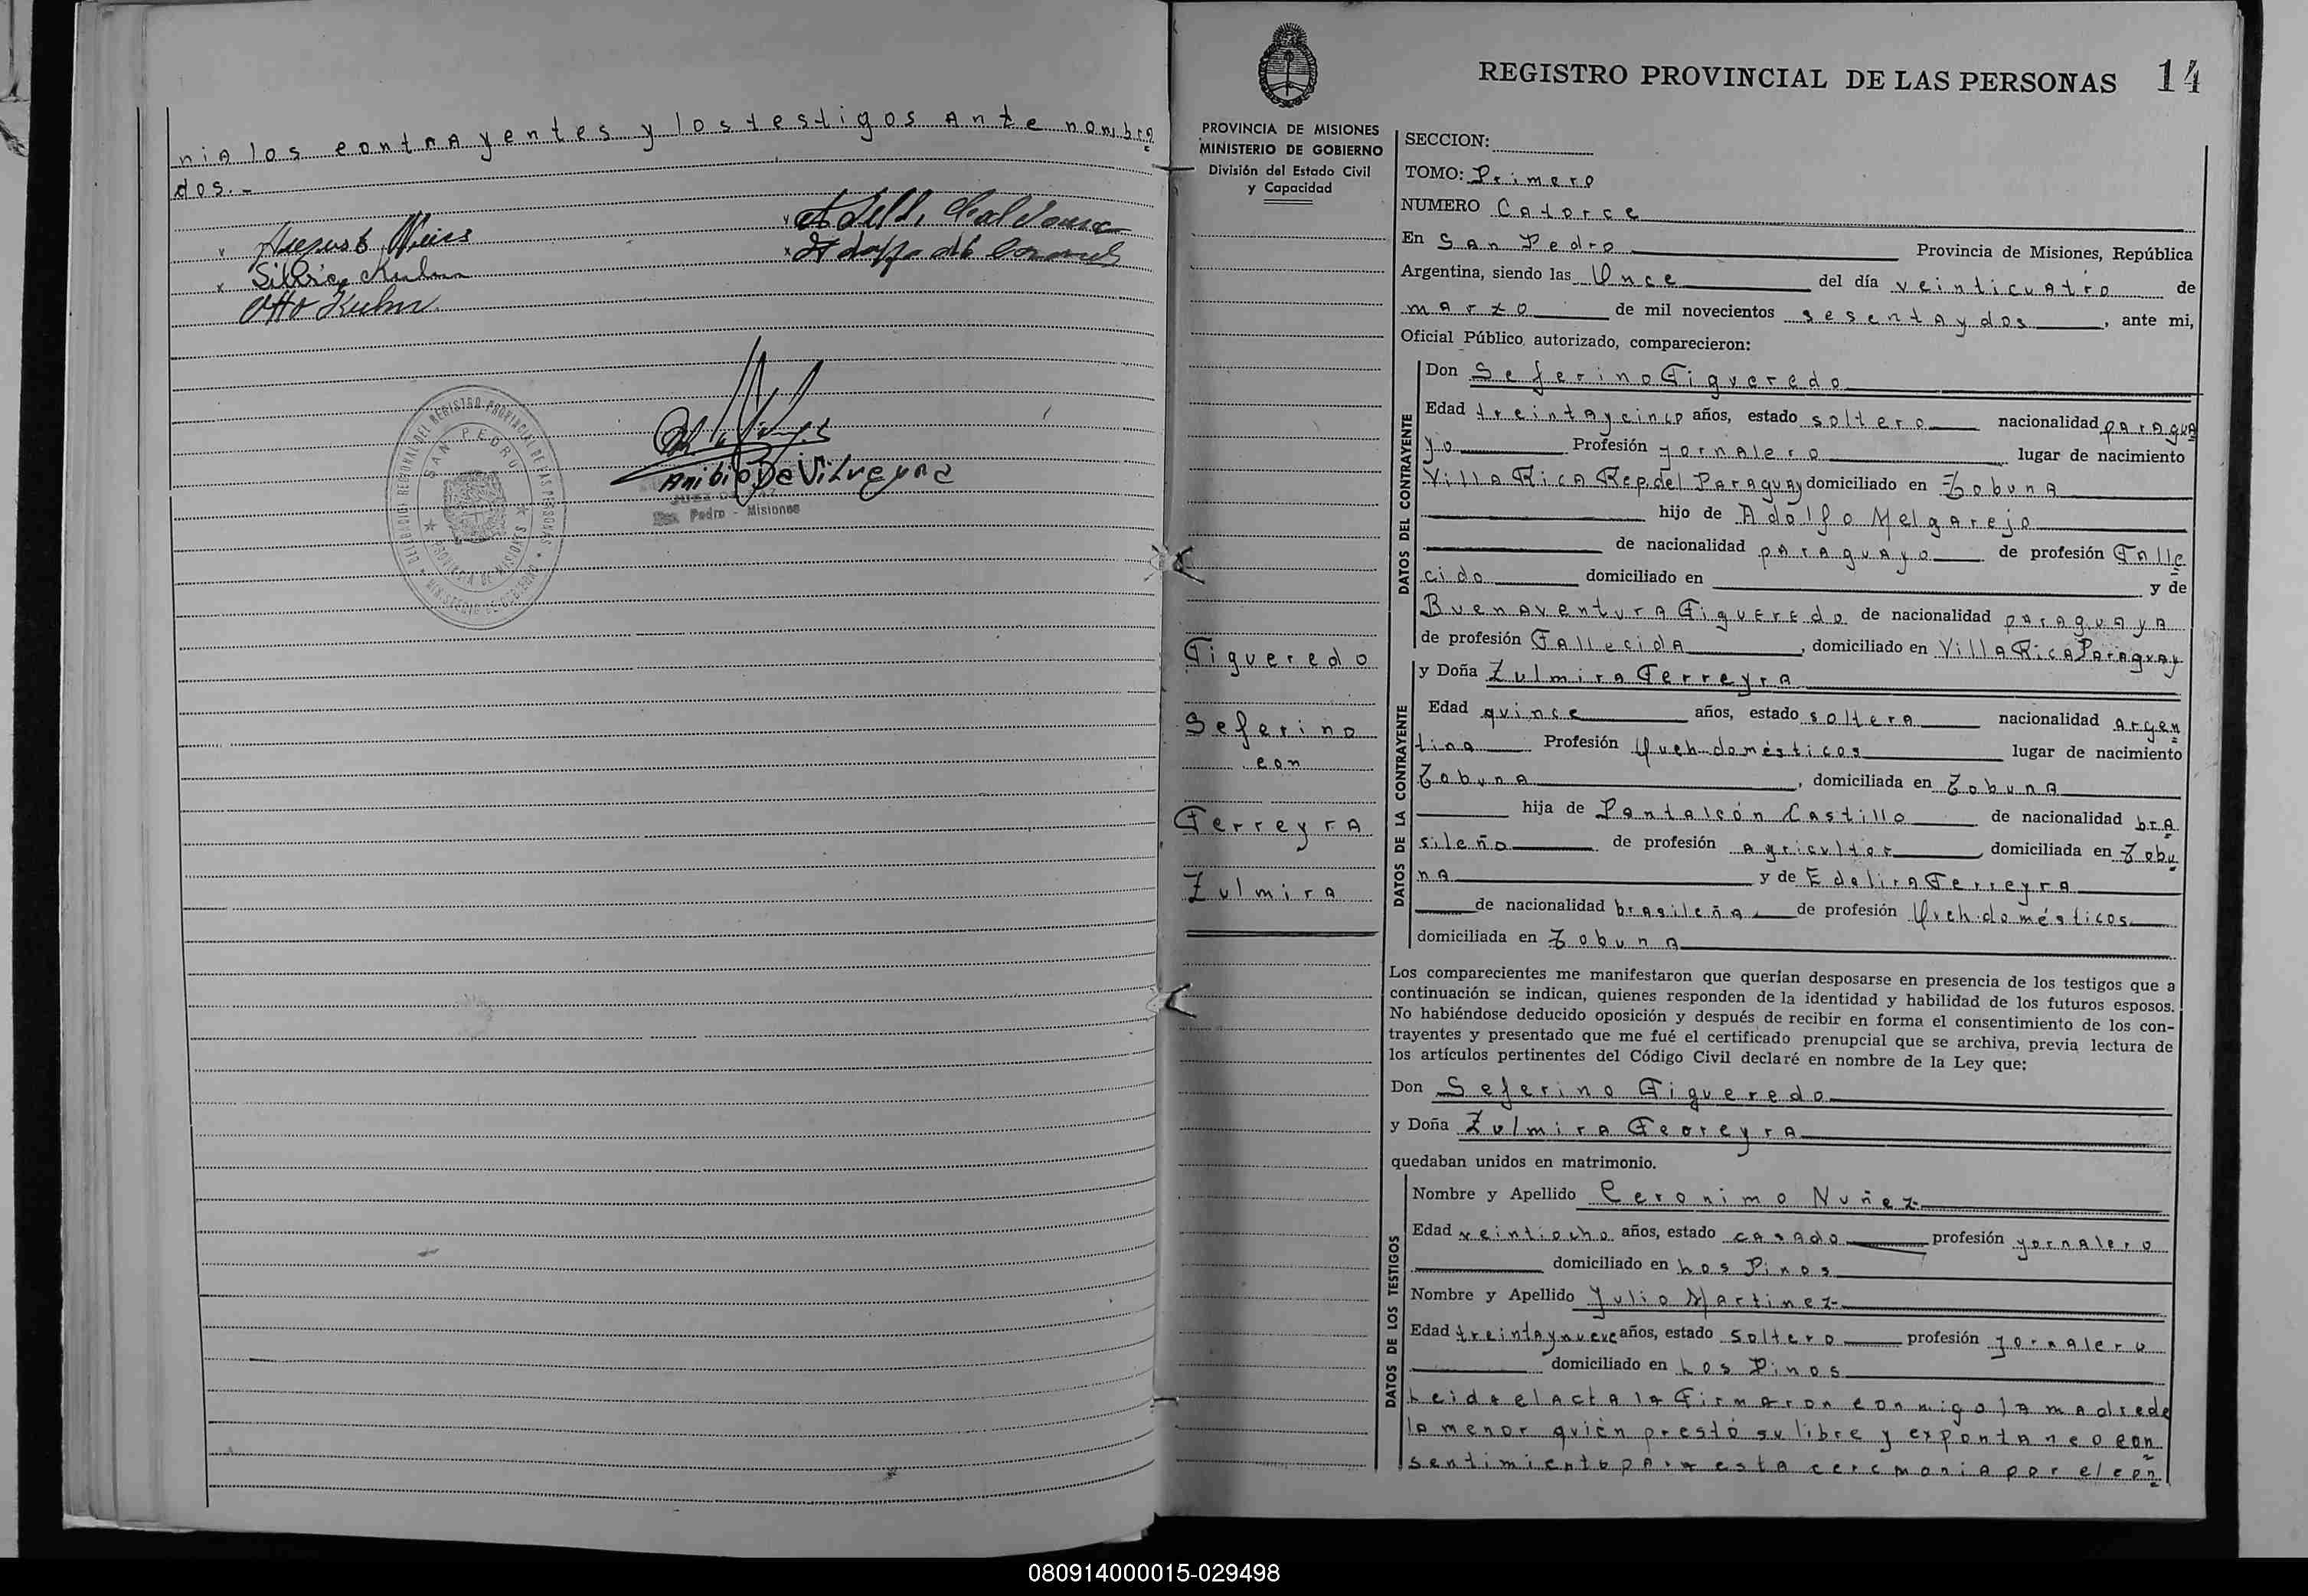 nia los contrayentes y los testigos ante nombra
dos.-
August Weiss
Silvia Kuhn
Otto Kuhn
DELEGACION REGIONAL DEL REGISTRO PROVINCIAL DE LAS PERSONAS
MINISTERIO DE GOBIERNO
SAN PEDRO
PROVINCIA DE MISIONES
San Pedro - Misiones
REGISTRO PROVINCIAL DE LAS PERSONAS 14
PROVINCIA DE MISIONES
MINISTERIO DE GOBIERNO
División del Estado Civil
y Capacidad
Figueredo
Seferino
con
Ferreyra
Zulmira
SECCION:
TOMO: Primero
NUMERO Catorce
En San Pedro Provincia de Misiones, República
Argentina, siendo las Once del día veinticuatro de
marzo de mil novecientos sesenta y dos, ante mi,
Oficial Público autorizado, comparecieron:
DATOS DEL CONTRAYENTE
Don Seferino Figueredo
Edad treinta y cinco años, estado soltero nacionalidad paragua
yo Profesión jornalero lugar de nacimiento
Villa Rica Rep. del Paraguay domiciliado en Tobuna
hijo de Adolfo Melgarejo
de nacionalidad paraguayo de profesión Falle
cido domiciliado en y de
Buenaventura Figueredo de nacionalidad paraguaya
de profesión Fallecida, domiciliado en Villa Rica Paraguay
DATOS DE LA CONTRAYENTE
y Doña Zulmira Ferreyra
Edad quince años, estado soltera nacionalidad argen
tina Profesión Queh. domésticos lugar de nacimiento
Tobuna, domiciliada en Tobuna
hija de Pantaleón Castillo de nacionalidad bra
sileño de profesión agricultor, domiciliada en Tobu
na y de Edelira Ferreyra
de nacionalidad brasileña de profesión Queh. domésticos
domiciliada en Tobuna
Los comparecientes me manifestaron que querían desposarse en presencia de los testigos que a
continuación se indican, quienes responden de la identidad y habilidad de los futuros esposos.
No habiéndose deducido oposición y después de recibir en forma el consentimiento de los con-
trayentes y presentado que me fué el certificado prenupcial que se archiva, previa lectura de
los artículos pertinentes del Código Civil declaré en nombre de la Ley que:
Don Seferino Figueredo
y Doña Zulmira Ferreyra
quedaban unidos en matrimonio.
DATOS DE LOS TESTIGOS
Nombre y Apellido Ceronimo Nuñez
Edad veintiocho años, estado casado profesión jornalero
domiciliado en Los Pinos
Nombre y Apellido Julio Martinez
Edad treinta y nueve años, estado soltero profesión jornalero
domiciliado en Los Pinos
Leida el acta la Firmaron conmigo la madre de
la menor quién prestó su libre y expontaneo con
sentimiento para esta ceremonia por el con
080914000015-029498